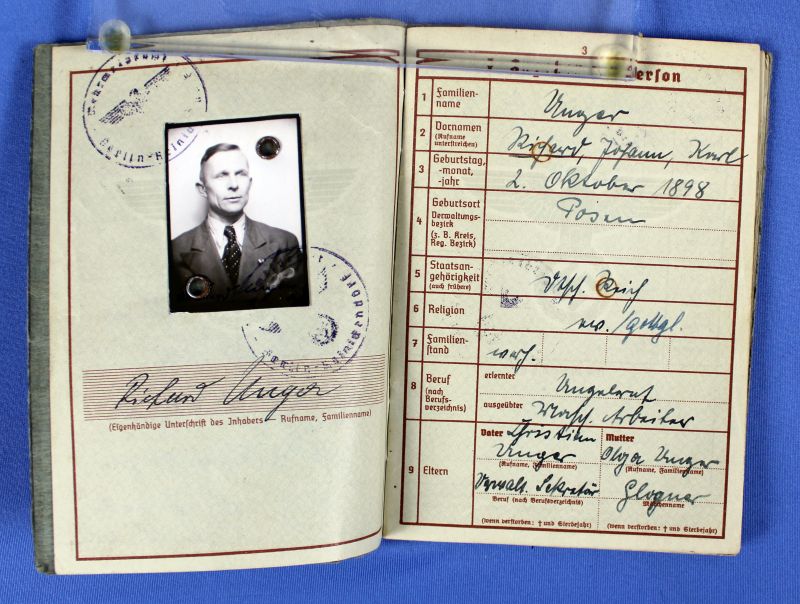 Wehrmeldeamt
Berlin-Reinick
Berlin-Reinickendorf
Richard Unger
(Eigenhändige Unterschrift des Inhabers – Rufname, Familienname)
3
Person
1 Familien-
name
Unger
2 Vornamen
(Rufname
unterstreichen)
Richard, Johann, Karl
3 Geburtstag,
-monat,
-jahr
2. Oktober 1898
4 Geburtsort
Verwaltungs-
bezirk
(z. B. Kreis,
Reg. Bezirk)
Posen
5 Staatsan-
gehörigkeit
(auch frühere)
Dtsch. Reich
6 Religion
ev. /gottgl.
7 Familien-
stand
verh.
8 Beruf
(nach
Berufs-
verzeichnis)
erlernter
Ungelernt
ausgeübter
Arbeiter
9 Eltern
Vater Christian
Unger
(Rufname, Familienname)
Verwalt. Sekretär
Beruf (nach Berufsverzeichnis)
(wenn verstorben: † und Sterbejahr)
Mutter
Olga Unger
(Rufname, Familienname)
Glogner
Mädchenname
(wenn verstorben: † und Sterbejahr)